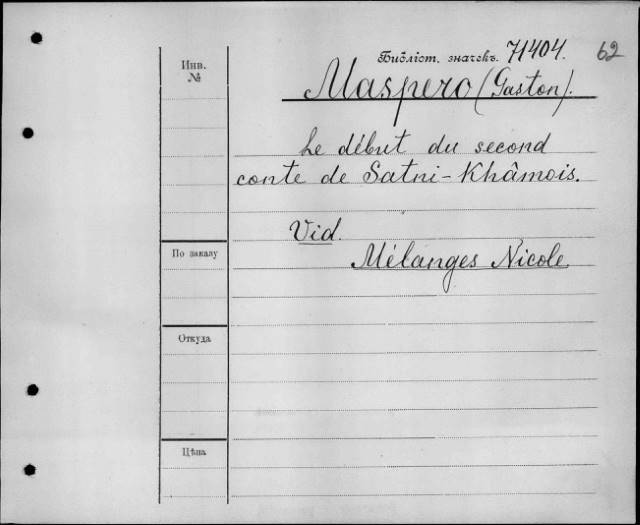 Библіот. значекъ. 71404. 62
Инв.
№
Maspero (Gaston).
Le début du second
conte de Satni-Khâmois.
Vid.
По заказу
Mélanges Nicole
Откуда
Цѣна